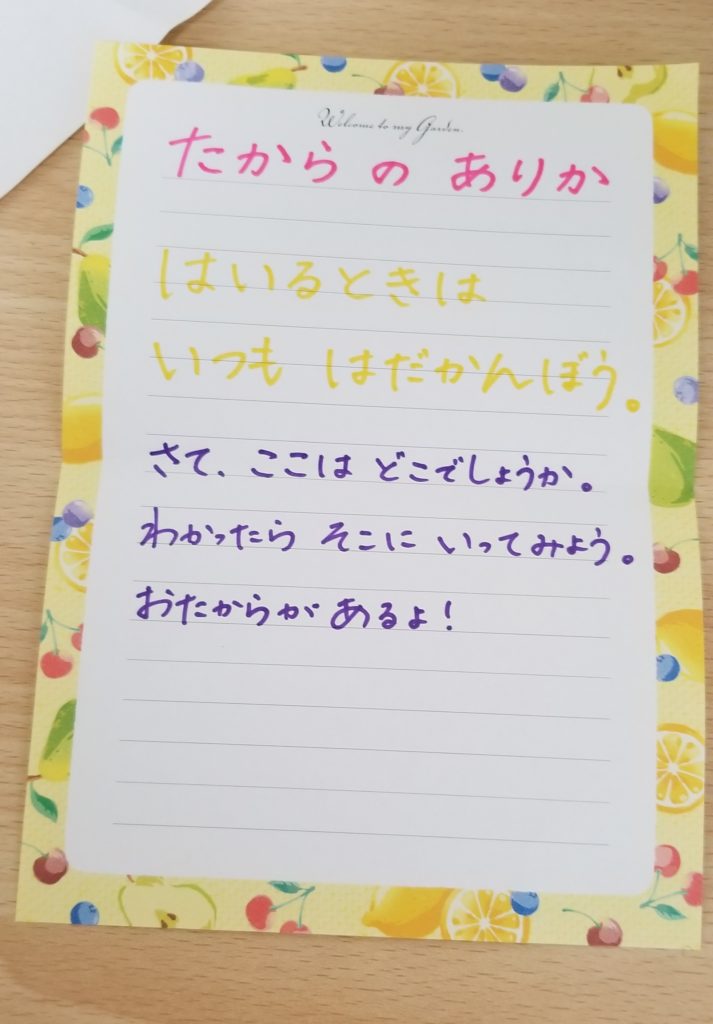 Welcome to my Garden.
たから の ありか
はいるときは
いつも はだかんぼう。
さて、ここは どこでしょうか。
わかったら そこに いってみよう。
おたからが あるよ!